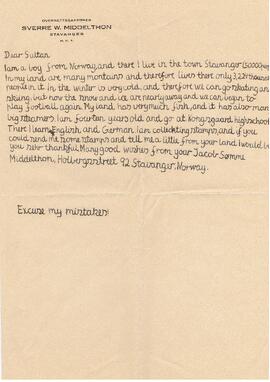 OVERRETTSSAKFØRER
SVERRE W. MIDDELTHON
STAVANGER
Dear Sultan.
I am a boy from Norway, and there I live in the town Stavanger
In my land are many montains and therefore lives there only
people in it. In the winter is very cold, and therefore we can go skating and
skiing. but now the snow and ice are nearly away and we can begin to
play football again. My land has very much fish, and it has also many
big steamers. I am fourteen years old and go at Kongsgaard highschool.
There I learn English, and German. I am collecting stamps, and if you
could send me some stamps and tell me a little from your land I would be
you very thankful. Many good wishes from your Jacob Sømme
Middelthon, Holbergsstreet 92 Stavanger, Norway.
Excuse my mistakes!